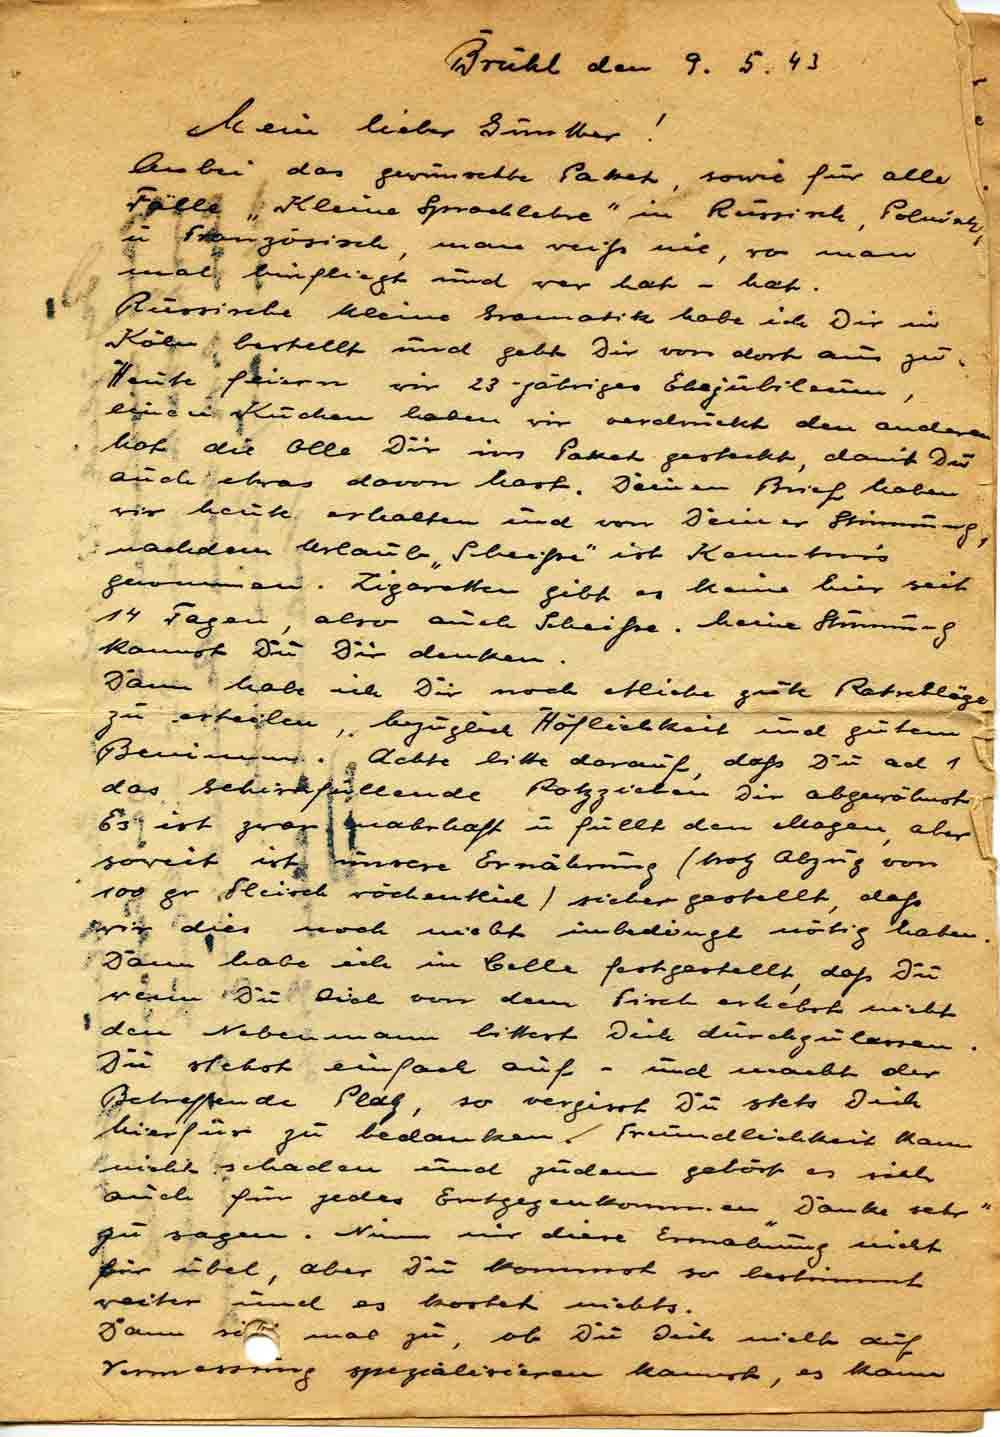 Brühl den 9. 5. 43
Mein lieber Günther!
Anbei das gewünschte Paket, sowie für alle
Fälle „Kleine Sprachlehre" in Russisch, Polnisch,
u Französisch, man weiß nie, wo man
mal hinfliegt und wer hat - hat.
Russische kleine Gramatik habe ich Dir in
Köln bestellt und geht Dir von dort aus zu.
Heute feiern wir 23-jähriges Ehejubileum,
einen Kuchen haben wir verdrückt den anderen
hat die Olle Dir ins Paket gesteckt, damit Du
auch etwas davon hast. Deinen Brief haben
wir heute erhalten und von Deiner Stimmung,
nachdem Urlaub „Scheiße" ist Kenntnis
genommen. Zigaretten gibt es keine hier seit
14 Tagen, also auch Scheiße. Meine Stimmung
kannst Du Dir denken.
Dann habe ich Dir noch etliche gute Ratschläge
zu erteilen, bezüglich Höflichkeit und gutem
Benimm. Achte bitte darauf, daß Du ad 1
das schirmfüllende Rotzziehen Dir abgewöhnst
Es ist zwar nahrhaft u füllt den Magen, aber
soweit ist unsere Ernährung (trotz Abzug von
100 gr Fleisch wöchentlich) sichergestellt, daß
wir dies noch nicht unbedingt nötig haben.
Dann habe ich in Celle festgestellt, daß Du
wenn Du Dich von dem Tisch erhebst nicht
den Nebenmann bittest Dich durchzulassen.
Du stehst einfach auf - und macht der
Betreffende Platz, so vergisst Du stets Dich
hierfür zu bedanken. Freundlichkeit kann
nicht schaden und zudem gehört es sich
auch für jedes Entgegenkommen „Danke sehr"
zu sagen. Nimm mir diese Ermahnung nicht
für übel, aber Du kommst so bestimmt
weiter und es kostet nichts.
Dann mal zu, ob Du Dich nicht auf
Vermessung spezialisieren kannst, es kann